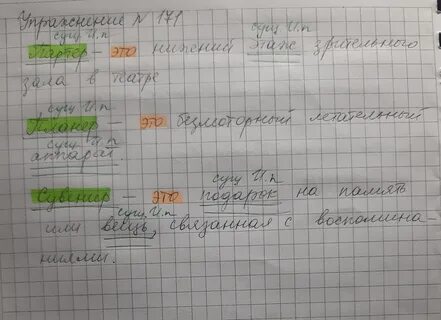 Упражнение № 171
сущ И.п сущ И.п
Партер – это нижний этаж зрительного
зала в театре
сущ И.п
Планер – это безмоторный летательный
сущ И.п
аппарат.
сущ И.п сущ И.п
Сувенир – это подарок на память
сущ И.п
или вещь, связанная с воспомина-
ниями.